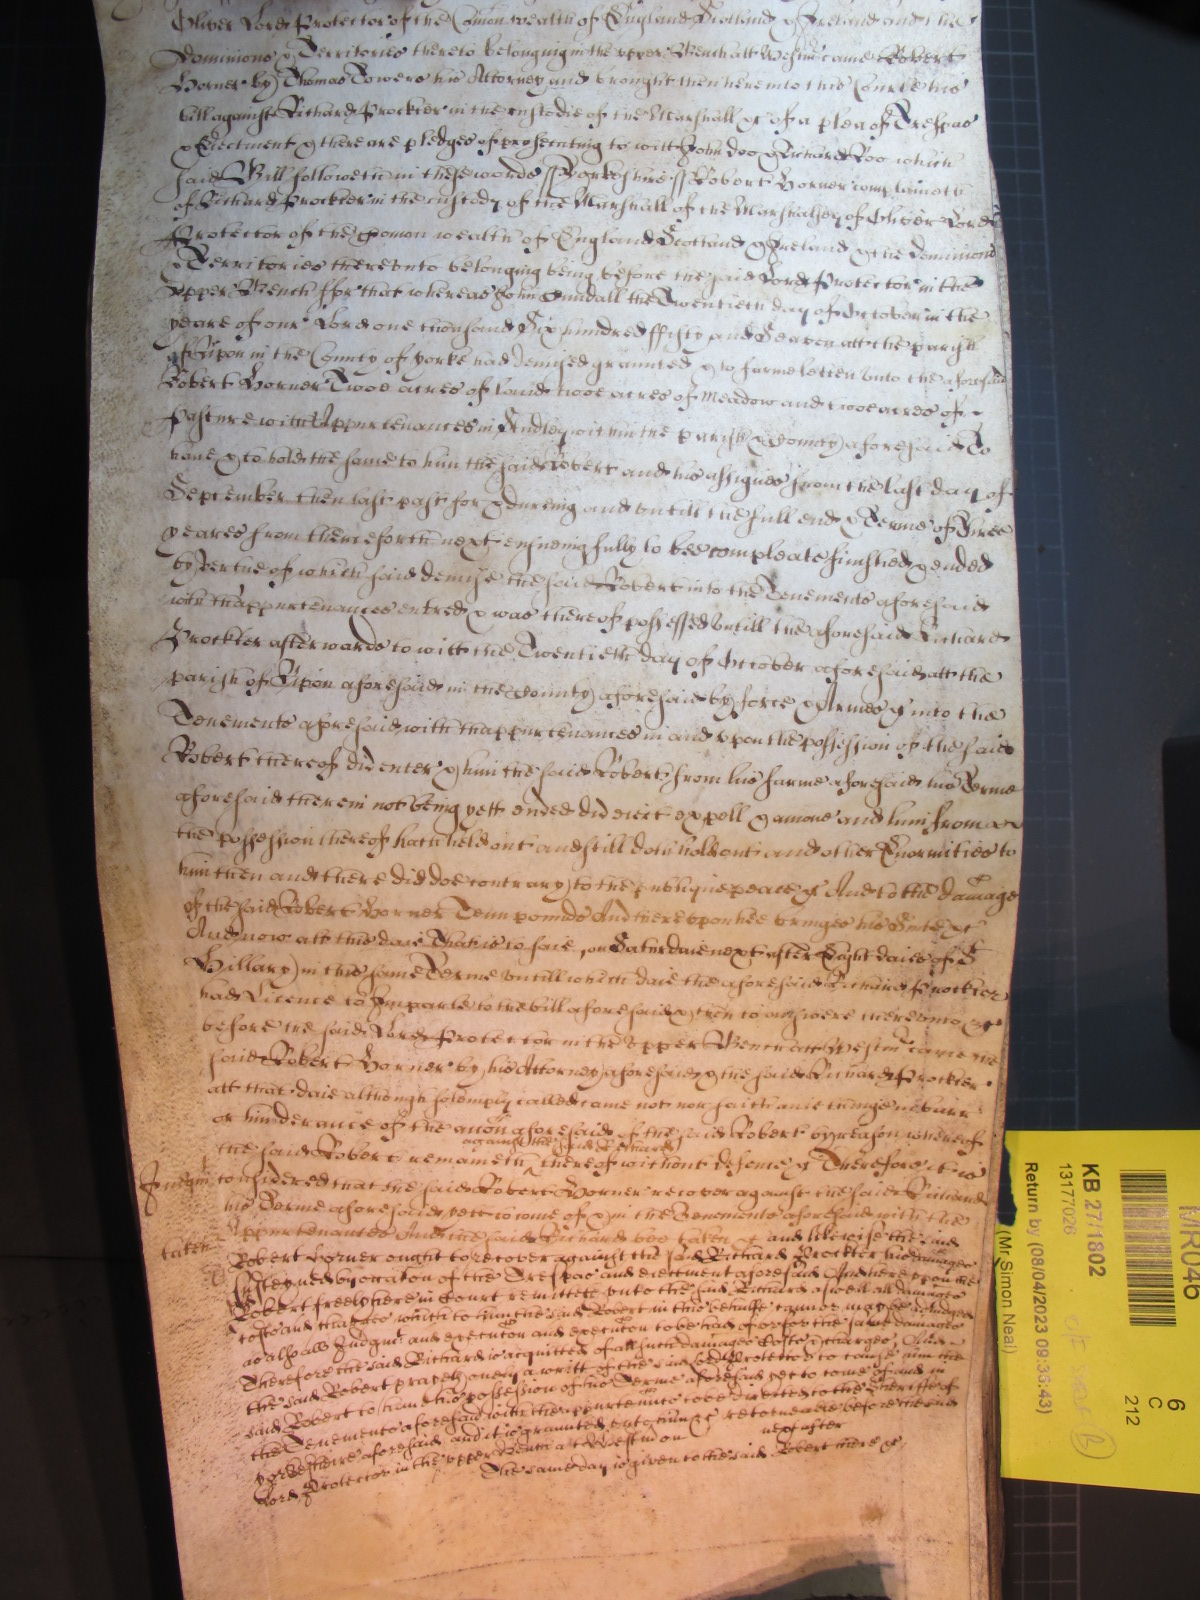 Oliver Lord Protector of the Comon wealth of England Scotland & Ireland and the
Dominions & Territories thereto belonging in the upper Bench att Westm̃ came Robert
Horner by Thomas Towers his Attorney and brought then here into this Court his
bill against Richard Prockter in the custodie of the Marshall &c of a plea of Trespas
& Eiectment & there are pledges of prosecuting to witt John Doo & Richard Roo which
said Bill followeth in these words ss Yorkeshire ss Robert Horner complaineth
of Richard Prockter in the custody of the Marshall of the Marshalsey of Oliver Lord
Protector of the Comon wealth of England Scotland & Ireland & the Dominions
& Territories thereunto belonging being before the said Lord Protector in the
Upper Bench ffor that whereas John the Twentieth day of October in the
yeare of our Lord one thousand Six hundred ffifty and Seaven att the parish
of Ripon in the County of Yorke had demised graunted & to farme letten unto the aforesaid
Robert Horner Twoe acres of land twoe acres of Meadow and twoe acres of
Pasture with Appurtenances in Studley within the parish & County aforesaid To
have & to hold the same to him the said Robert and his assignes from the last day of
September then last past for & dureing and untill the full end & Terme of
yeares from thenceforth next ensueing fully to bee compleate finished & ended
by vertue of which said demise the said Robert into the Tenements aforesaid
with thappurtenances entred & was thereof possessed Untill the aforesaid Richard
Prockter afterwards to witt the Twentieth day of October aforesaid att the
parish of Ripon aforesaid in the County aforesaid by force & Armes & into the
Tenements aforesaid with thappurtenances in and upon the possession of the said
Robert thereof did enter & him the said Robert from his farme aforesaid his Terme
aforesaid therein not being yett ended did eiect expell & amove and him from
the possession thereof hath held out and still doth hold out and other Enormities to
him then and there did doe contrary to the publique peace & And to the damage
of the said Robert Horner Tenn pounds And thereupon hee bringes his Suite &c
And now att this daie That is to saie on Saturdaie next after Eight daies of S
Hillary in this same Terme untill which daie the aforesaid Richard Prockter
had Licence to Imparle to the bill aforesaid & then to answere thereunto &c
before the said Lord Protector in the Upper Bench att Westm̃ came the
said Robert Horner by his Attorney aforesaid & the said Richard Prockter
att that daie although solemply called came not nor saith anie thinge in barr
or hinderance of the accon̄ aforesaid of the said Robert by reason whereof
against the said Richard
the said Robert remaineth thereof without defence & Therefore it is
Judgm̃t
considered that the said Robert Horner recover against the said Richard
his Terme aforesaid yett to come of & in the Tenements aforesaid with the
taken
Appurtenances And the said Richard bee taken &c and likewise the said
Robert Horner ought to recover against the said Richard Prockter his damages
by occac̃on of the Trespas and eiectment aforesaid And hereupon the
Robert freely here in Court remitteth unto the said Richard aswell all damages
costs and charges which to him the said Robert in this behalfe cannot may be adiudged
as also all Judgm̃t and execuc̃on and execuc̃on to be had of or for the same damages
Therefore the said Richard is acquitted of all such damages Costs & charges And
the said Robert prayeth a writt of the said lord Protector to cause him the
said Robert to have his possession of his Terme aforesaid yet to come of and in
the Tenements aforesaid with the appurtenñts to be directed to the Sheriffe of
Yorkeshire aforesaid and it is graunted unto him &c retorneable before the said
Lord Protector in the upper Bench at Westm̃ on next after
The same day is given to the said Robert there &c
MR046
6
C
212
KB 27/1802
13177026
Return by (08/04/2023 09:36:43)
(Mr Simon Neal)